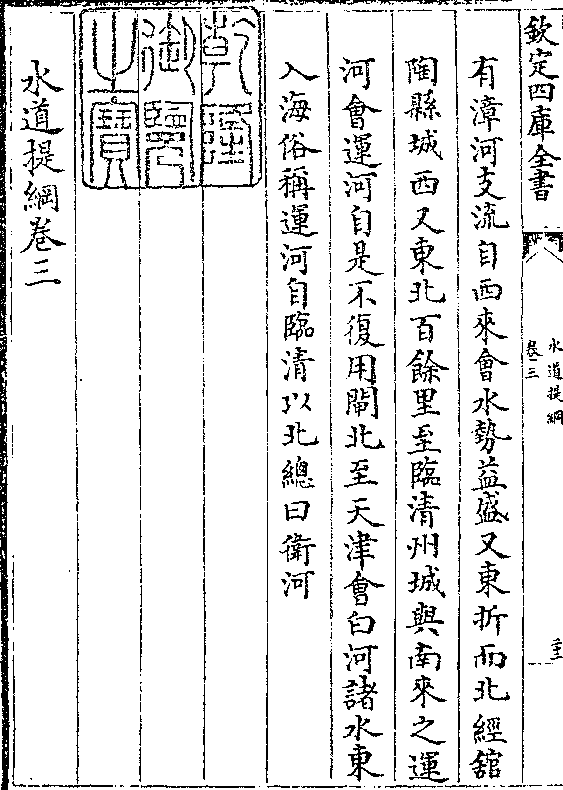 欽定四庫全書
水道提綱
卷三
有漳河支流自西來會水勢益盛又東折而北經舘
陶縣城西又東北百餘里至臨清州城與南來之運
河會運河自是不復用閘北至天津會白河諸水東
入海俗稱運河自臨清以北總曰衛河
乾隆
御覽
之寶
水道提綱卷三